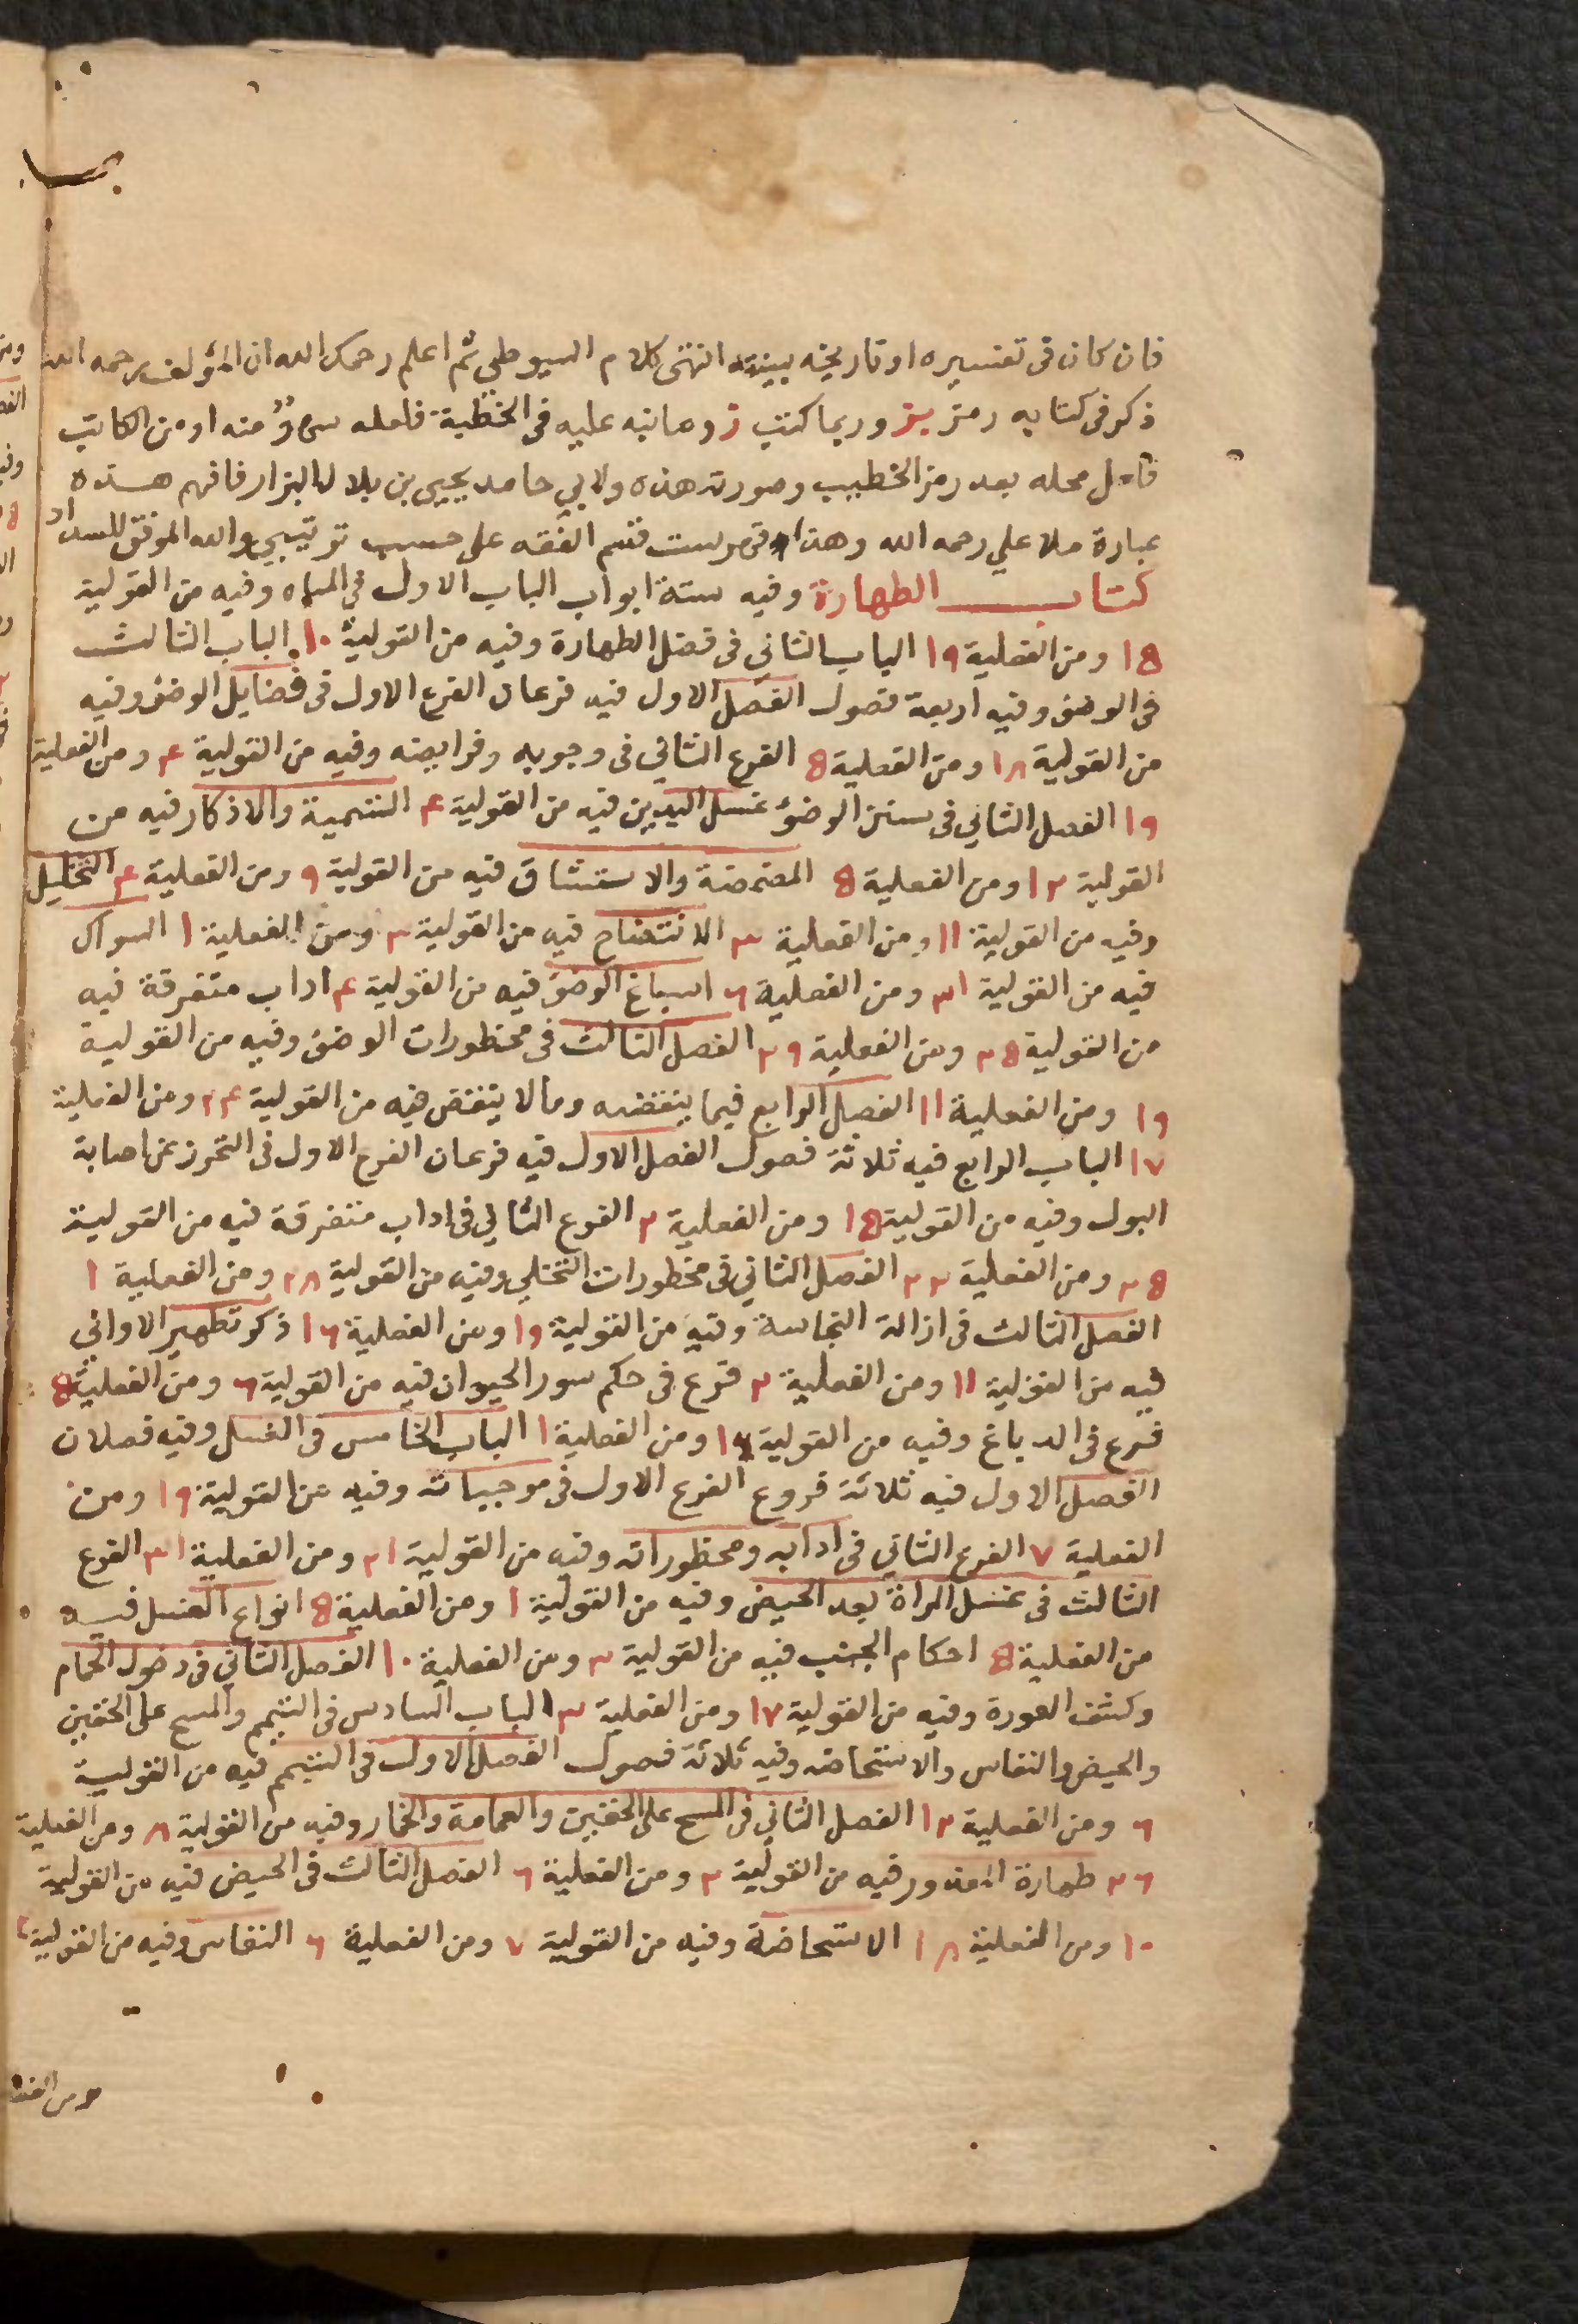 فان كان فى تفسيره او تاريخه بينته انتهى كلام السيوطي ثم اعلم رحمك الله ان المؤلف رحمه الله
ذكر فى كتابه رمز بز وربما كتب ز وما نبه عليه فى الخطبة فلعله سهو منه او من الكاتب
محله بعد رمز الخطيب وصورته هذه ولابي حامد يحيى بن بلال البزار فافهم هذه
عبارة ملا علي رحمه الله وهذا فهرست قسم الفقه على حسب ترتيبي والله الموفق للسداد
كتاب الطهارة وفيه ستة ابواب الباب الاول في المياه وفيه من القولية
١٥ ومن الفعلية ١٩ الباب الثاني فى فضل الطهارة وفيه من القولية ١٠ الباب الثالث
فى الوضؤ وفيه اربعة فصول الفصل الاول فيه فرعان الفرع الاول فى فضايل الوضؤ وفيه
من القولية ١٨ ومن الفعلية ٥ الفرع الثاني فى وجوبه وفرايضه وفيه من القولية ٤ ومن الفعلية
١٩ الفصل الثاني فى سنن الوضؤ غسل اليدين فيه من القولية ٤ التسمية والاذكار فيه من
القولية ١٢ ومن الفعلية ٥ المضمضة والاستنشاق فيه من القولية ٩ ومن الفعلية ٤ التخليل
وفيه من القولية ١١ ومن الفعلية ٣ الانتضاح فيه من القولية ٣ ومن الفعلية ١ السواك
فيه من القولية ٣١ ومن الفعلية ٦ اسباغ الوضؤ فيه من القولية ٤ اداب متفرقة فيه
من القولية ٢٥ ومن الفعلية ٢٩ الفصل الثالث فى محظورات الوضؤ وفيه من القولية
١٩ ومن الفعلية ١١ الفصل الرابع فيما ينقضه وما لا ينقض فيه من القولية ٢٤ ومن الفعلية
١٧ الباب الرابع فيه ثلاثة فصول الفصل الاول فيه فرعان الفرع الاول فى التحرز عن اصابة
البول وفيه من القولية ١٥ ومن الفعلية ٢ الفرع الثاني فى اداب متفرقة فيه من القولية
٢٥ ومن الفعلية ٢٢ الفصل الثاني فى محظورات التخلي وفيه من القولية ٢٨ ومن الفعلية ١
الفصل الثالث فى ازالة النجاسة وفيه من القولية ١٩ ومن الفعلية ١٦ ذكر تطهير الاوانى
فيه من القولية ١١ ومن الفعلية ٢ فرع فى حكم سور الحيوان فيه من القولية ٦ ومن الفعلية ٥
فرع فى الدباغ وفيه من القولية ١٦ ومن الفعلية ١ الباب الخامس فى الغسل وفيه فصلان
الفصل الاول فيه ثلاثة فروع الفرع الاول فى موجباته وفيه من القولية ١٩ ومن
الفعلية ٧ الفرع الثاني فى ادابه ومحظوراته وفيه من القولية ٢١ ومن الفعلية ٣١ الفرع
الثالث فى غسل المراة بعد الحيض وفيه من القولية ١ ومن الفعلية ٥ انواع الغسل فيه
من الفعلية ٥ احكام الجنب فيه من القولية ٣ ومن الفعلية ١٠ الفصل الثاني فى دخول الحمام
وكشف العورة وفيه من القولية ١٧ ومن الفعلية ٣ الباب السادس فى التيمم والمسح على الخفين
والحيض والنفاس والاستحاضه وفيه ثلاثة فصول الفصل الاول فى التيمم فيه من القولية
٦ ومن الفعلية ١٢ الفصل الثاني فى المسح على الخفين والعمامة والخمار وفيه من القولية ٨ ومن الفعلية
٢٦ طهارة المعذور فيه من القولية ٢ ومن الفعلية ٦ الفصل الثالث فى الحيض فيه من القولية
١٠ ومن الفعلية ١٨ الاستحاضة وفيه من القولية ٧ ومن الفعلية ٦ النفاس وفيه من القولية ٢